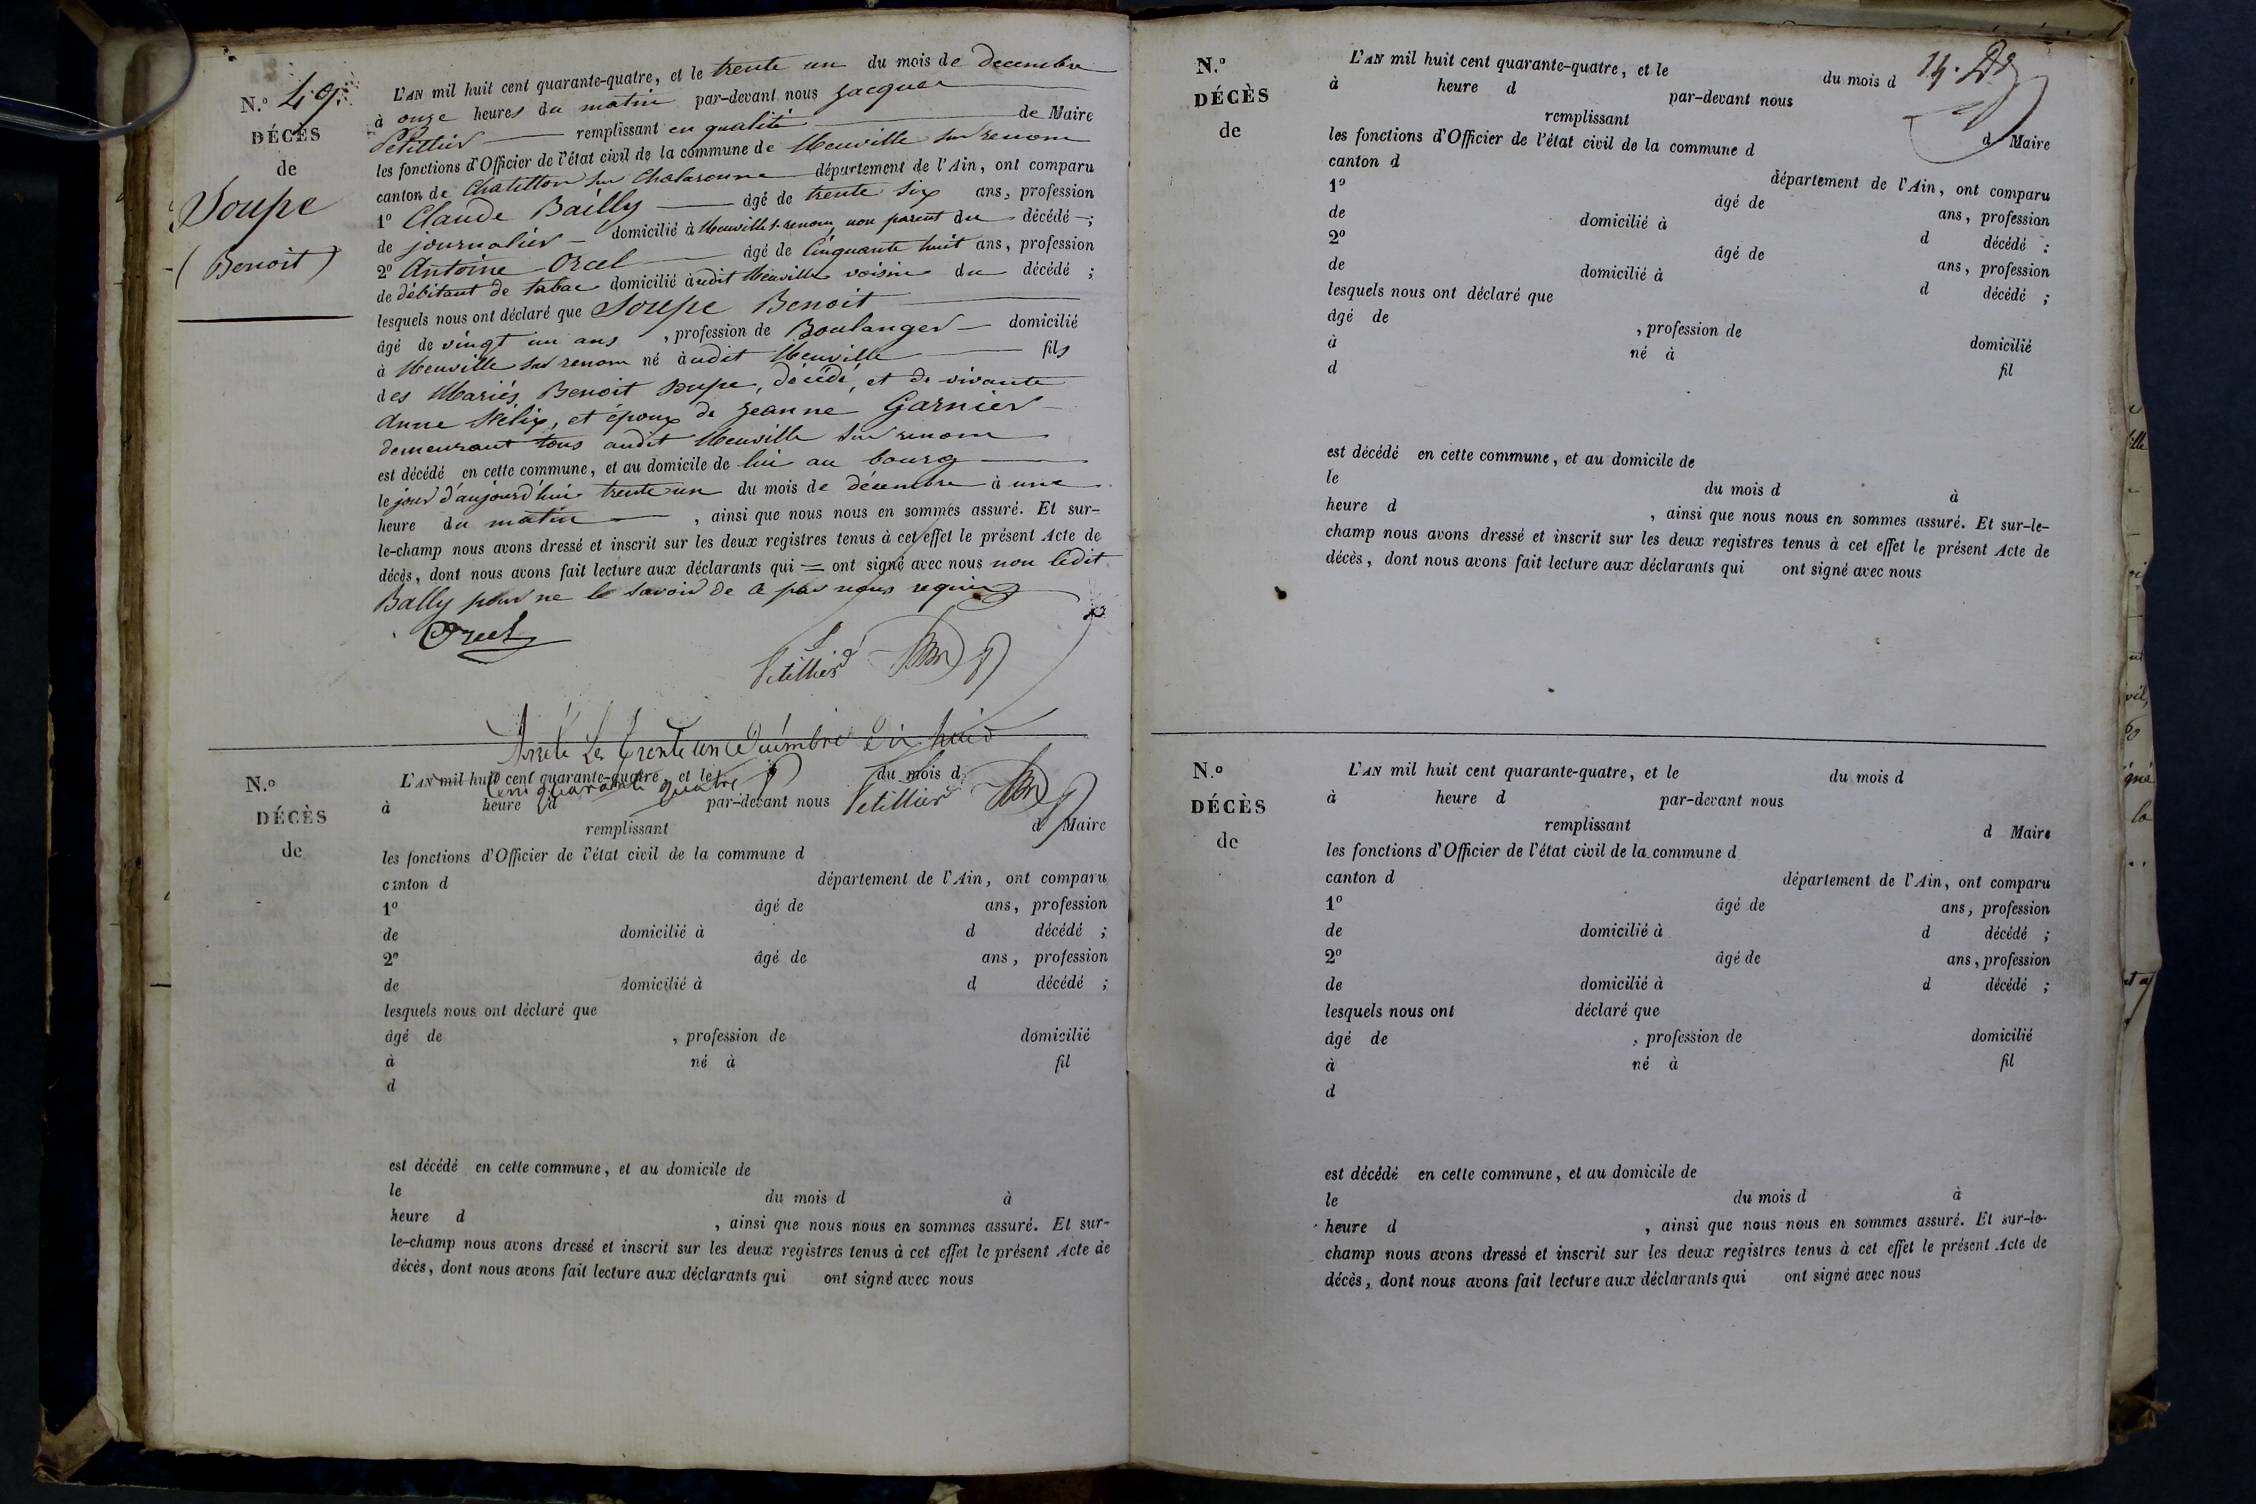 N.º 49.
DÉCÈS
de
Soupe
(Benoit)
L'AN mil huit cent quarante-quatre, et le trente un du mois de decembre
à onze heures du matin par-devant nous Jacques
Petillier remplissant en qualité de Maire
les fonctions d'Officier de l'état civil de la commune de Neuville sur renom
canton de Chatillon sur Chalaronne département de l'Ain, ont comparu
1º Claude Bailly âgé de trente six ans, profession
de journalier domicilié à Neuville s. renom, non parent du décédé ;
2º Antoine Orcel âgé de Cinquante huit ans, profession
de débitant de tabac domicilié àudit Neuville voisin du décédé ;
lesquels nous ont déclaré que Soupe Benoit
âgé de vingt un ans , profession de Boulanger domicilié
à Neuville sur renom né àudit Neuville fils
des Mariés Benoit soupe, décédé, et de vivante
Anne , et époux de Jeanne Garnier
demeurant tous audit Neuville sur renom
est décédé en cette commune, et au domicile de lui au bourg
le jour d'aujourd'hui trente un du mois de décembre à une
heure du matin , ainsi que nous nous en sommes assuré. Et sur-
le-champ nous avons dressé et inscrit sur les deux registres tenus à cet effet le présent Acte de
décès, dont nous avons fait lecture aux déclarants qui = ont signé avec nous non ledit
Bally pour ne le savoir de ce par nous requis
Orcel
Petillier
Arrêté Le trente un Décembre Dix huit
cent quarante quatre
Petillier
N.º
DÉCÈS
de
L'AN mil huit cent quarante-quatre, et le du mois d
à heure d par-devant nous
remplissant d Maire
les fonctions d'Officier de l'état civil de la commune d
canton d département de l'Ain, ont comparu
1º âgé de ans, profession
de domicilié à d décédé ;
2º âgé de ans, profession
de domicilié à d décédé ;
lesquels nous ont déclaré que
âgé de , profession de domicilié
à né à fil
d
est décédé en cette commune, et au domicile de
le du mois d à
heure d , ainsi que nous nous en sommes assuré. Et sur-
le-champ nous avons dressé et inscrit sur les deux registres tenus à cet effet le présent Acte de
décès, dont nous avons fait lecture aux déclarants qui ont signé avec nous
14.
N.º
DÉCÈS
de
L'AN mil huit cent quarante-quatre, et le du mois d
à heure d par-devant nous
remplissant d Maire
les fonctions d'Officier de l'état civil de la commune d
canton d département de l'Ain, ont comparu
1º âgé de ans, profession
de domicilié à d décédé ;
2º âgé de ans, profession
de domicilié à d décédé ;
lesquels nous ont déclaré que
âgé de , profession de domicilié
à né à fil
d
est décédé en cette commune, et au domicile de
le du mois d à
heure d , ainsi que nous nous en sommes assuré. Et sur-le-
champ nous avons dressé et inscrit sur les deux registres tenus à cet effet le présent Acte de
décès, dont nous avons fait lecture aux déclarants qui ont signé avec nous
N.º
DÉCÈS
de
L'AN mil huit cent quarante-quatre, et le du mois d
à heure d par-devant nous
remplissant d Maire
les fonctions d'Officier de l'état civil de la commune d
canton d département de l'Ain, ont comparu
1º âgé de ans, profession
de domicilié à d décédé ;
2º âgé de ans, profession
de domicilié à d décédé ;
lesquels nous ont déclaré que
âgé de , profession de domicilié
à né à fil
d
est décédé en cette commune, et au domicile de
le du mois d à
heure d , ainsi que nous nous en sommes assuré. Et sur-le-
champ nous avons dressé et inscrit sur les deux registres tenus à cet effet le présent Acte de
décès, dont nous avons fait lecture aux déclarants qui ont signé avec nous